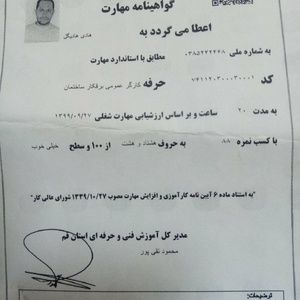 گواهینامه مهارت
اعطا می گردد به
هادی عابدیگل
به شماره ملی ۰۳۸۵۲۴۲۴۶۸ مطابق با استاندارد مهارت
حرفه کارگر عمومی برقکار ساختمان
کد ۷۴۱۱۲۰۳۰۰۰۳۰۰۰۱
به مدت ۲۰ ساعت و بر اساس ارزشیابی مهارت شغلی ۱۳۹۹/۰۹/۲۷
با کسب نمره ۸۸ به حروف هشتاد و هشت از ۱۰۰ و سطح خیلی خوب
"به استناد ماده ۶ آیین نامه کارآموزی و افزایش مهارت مصوب ۱۳۳۹/۱۰/۲۷ شورای عالی کار"
مدیر کل آموزش فنی و حرفه ای استان قم
محمود نقی پور
توضیحات: